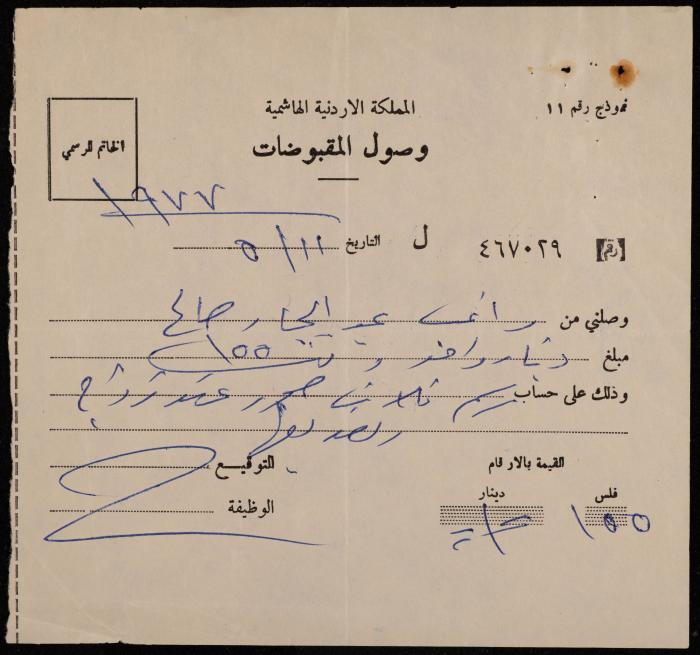 نموذج رقم ١١
المملكة الاردنية الهاشمية
وصول المقبوضات
الخاتم الرسمي
١٩٧٧
رقم ٤٦٧٠٢٩ ل التاريخ ١١/٥
وصلني من راغب عبد الجبار صالح
مبلغ دينار واحد و ١٥٥
وذلك على حساب رسم ثلاث صور عقد زواج
القيمة بالارقام
التوقيع
فلس دينار
الوظيفة
١٥٥ ١